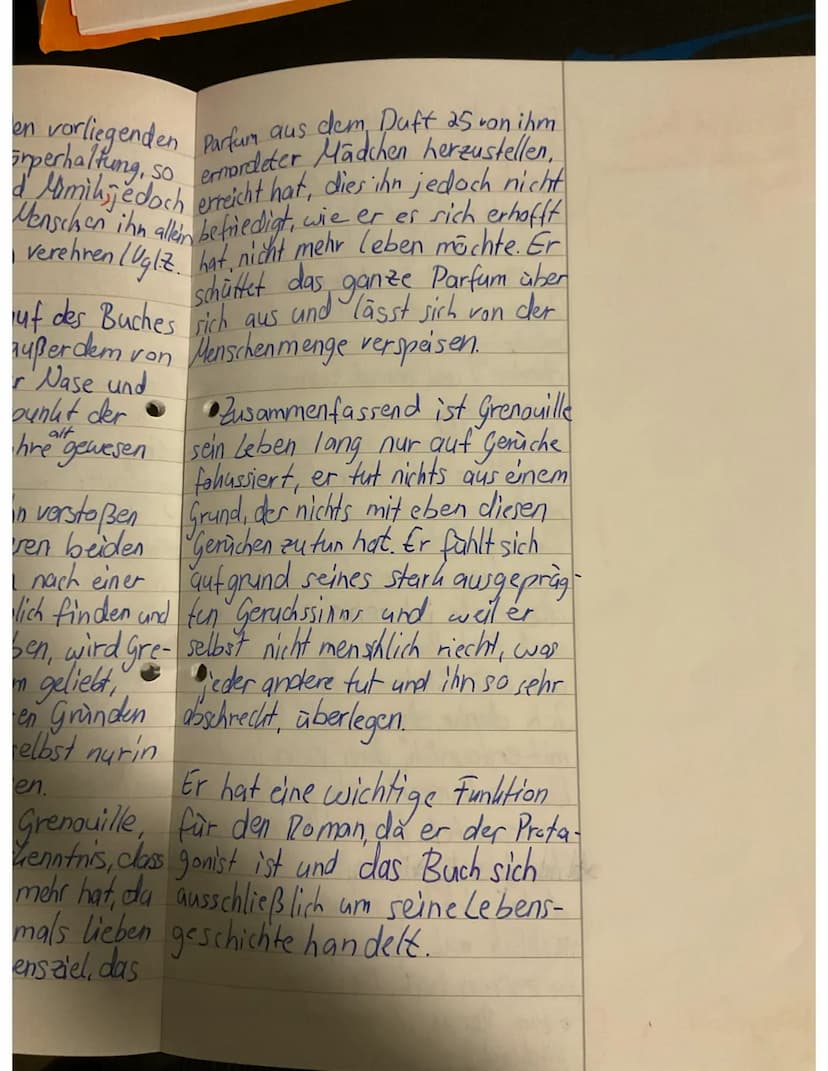 en vorliegenden
örperhaltung, so
d Mimik, jedoch
Menschen ihn allein
verehren (Vgl. Z.
uf des Buches
außerdem von
r Nase und
punkt der
hre alt gewesen
n verstoßen
ren beiden
nach einer
lich finden und
ben, wird Gre-
m geliebt,
en Gründen
selbst nur in
en.
Grenouille,
kenntnis, dass
mehr hat, da
mals lieben
ensziel, das
Parfum aus dem Duft 25 von ihm
ermordeter Mädchen herzustellen,
erreicht hat, dies ihn jedoch nicht
befriedigt, wie er es sich erhofft
hat, nicht mehr leben möchte. Er
schüttet das ganze Parfum über
sich aus und lässt sich von der
Menschenmenge verspeisen.
Zusammenfassend ist Grenouille
sein Leben lang nur auf Gerüche
fokussiert, er tut nichts aus einem
Grund, der nichts mit eben diesen
Gerüchen zu tun hat. Er fühlt sich
aufgrund seines stark ausgepräg-
ten Geruchssinns und weil er
selbst nicht menschlich riecht, was
jeder andere tut und ihn so sehr
abschreckt, überlegen.
Er hat eine wichtige Funktion
für den Roman, da er der Prota-
gonist ist und das Buch sich
ausschließlich um seine Lebens-
geschichte handelt.